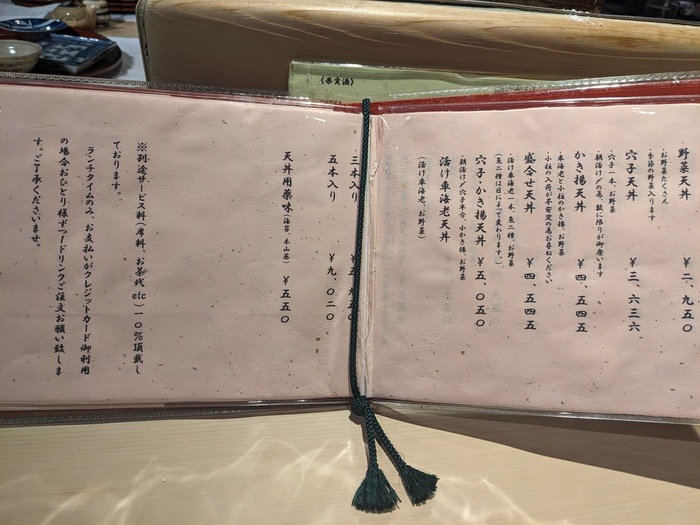 《果実酒》
野菜天丼 ￥二、九五〇
・お野菜たくさん
季節の野菜入ります
穴子天丼 ￥三、六三六
・穴子一本、お野菜
・朝活け〆の為、数に限りが御座います
かき揚天丼 ￥四、五四五
・車海老と小柱のかき揚、お野菜
・小柱の入荷が不安定の為お尋ねください
盛合せ天丼 ￥四、五四五
・活け車海老一本、魚二種、お野菜
(魚二種は日によって変わります。)
穴子・かき揚天丼 ￥五、〇五〇
・朝活け〆穴子半分、小かき揚、お野菜
活け車海老天丼
(活け車海老、お野菜)
三本入り
五本入り ￥九、〇二〇
天丼用薬味(海苔、本山葵) ￥五五〇
※別途サービス料(席料、お茶代etc)一〇％頂戴し
ております。
ランチタイムのみ、お支払いがクレジットカード御利用
の場合おひとり様ずつ1ドリンクご注文お願い致しま
す。ご了承くださいませ。